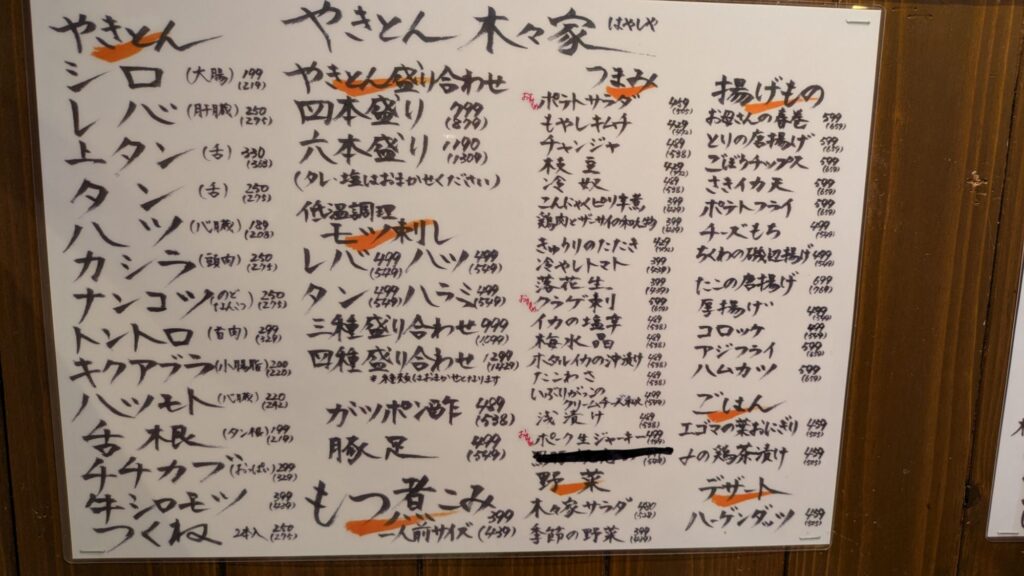 やきとん 木々家 はやしや
やきとん
シロ (大腸) 199 (219)
レバ (肝臓) 250 (275)
上タン (舌) 330 (363)
タン (舌) 250 (275)
ハツ (心臓) 189 (208)
カシラ (頭肉) 250 (275)
ナンコツ (のどなんこつ) 250 (275)
トントロ (首肉) 299 (329)
キクアブラ (小腸脂) 200 (220)
ハツモト (心臓) 220 (242)
舌根 (タン根) 199 (219)
チチカブ (おっぱい) 299 (329)
牛シロモツ 399 (439)
つくね 2本入 250 (275)
やきとん盛り合わせ
四本盛り 799 (879)
六本盛り 1190 (1309)
(タレ・塩はおまかせください)
低温調理
モツ刺し
レバ 499 (549) ハツ 499 (549)
タン 499 (549) ハラミ 499 (549)
三種盛り合わせ 999 (1099)
四種盛り合わせ 1299 (1429)
*種類はおまかせとなります
ガツポン酢 489 (538)
豚足 499 (549)
もつ煮こみ 399
一人前サイズ (439)
つまみ
ポテトサラダ 459 (505)
もやしキムチ 429
チャンジャ 489 (538)
枝豆 429
冷奴 489 (538)
こんにゃくピリ辛煮 399 (439)
鶏肉とザーサイの和え物 399 (439)
きゅうりのたたき
冷やしトマト 399 (439)
落花生 399 (439)
クラゲ刺 599 (659)
イカの塩辛 489 (538)
梅水晶 489 (538)
ホタルイカの沖漬け 489 (538)
たこわさ 489 (538)
いぶりがっこの
クリームチーズ和え 499 (549)
浅漬け 489 (538)
ポーク生ジャーキー 499 (549)
野菜
木々家サラダ 480 (528)
季節の野菜 399
揚げもの
お母さんの春巻 599 (659)
とりの唐揚げ 599 (659)
ごぼうチップス 599 (659)
さきイカ天 599 (659)
ポテトフライ 599 (659)
チーズもち 499 (549)
ちくわの磯辺揚げ 499 (549)
たこの唐揚げ 699 (769)
厚揚げ 499 (549)
コロッケ 499 (549)
アジフライ 599 (659)
ハムカツ 599 (659)
ごはん
エゴマの葉おにぎり 459 (505)
〆の鶏茶漬け 459 (505)
デザート
ハーゲンダッツ 459 (505)